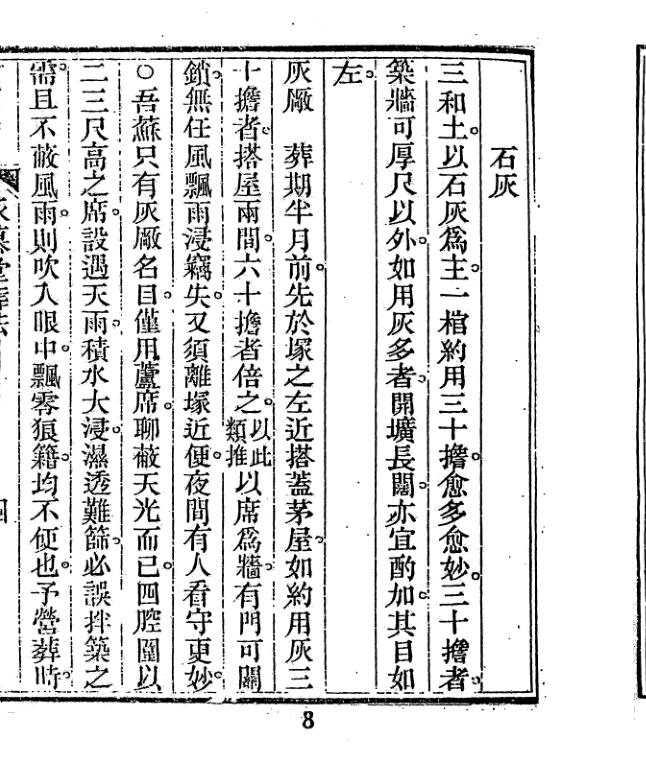 石灰
三和土。以石灰爲主。一棺約用三十擔。愈多愈妙。三十擔者。
築牆可厚尺以外。如用灰多者。開壙長闊。亦宜酌加。其目如
左。
灰廠　葬期半月前。先於塚之左近搭蓋茅屋。如約用灰三
十擔者。搭屋兩間。六十擔者倍之。以此類推以席爲牆。有門可關
鎖。無任風飄雨浸竊失。又須離塚近便。夜間有人看守更妙。
○吾蘇只有灰廠名目。僅用蘆席。聊蔽天光而已。四腔圍以
二三尺高之席。設遇天雨。積水大浸。濕透難篩。必誤拌築之
需。且不蔽風雨。則吹入眼中。飄零狼籍。均不便也。予營葬時。
8